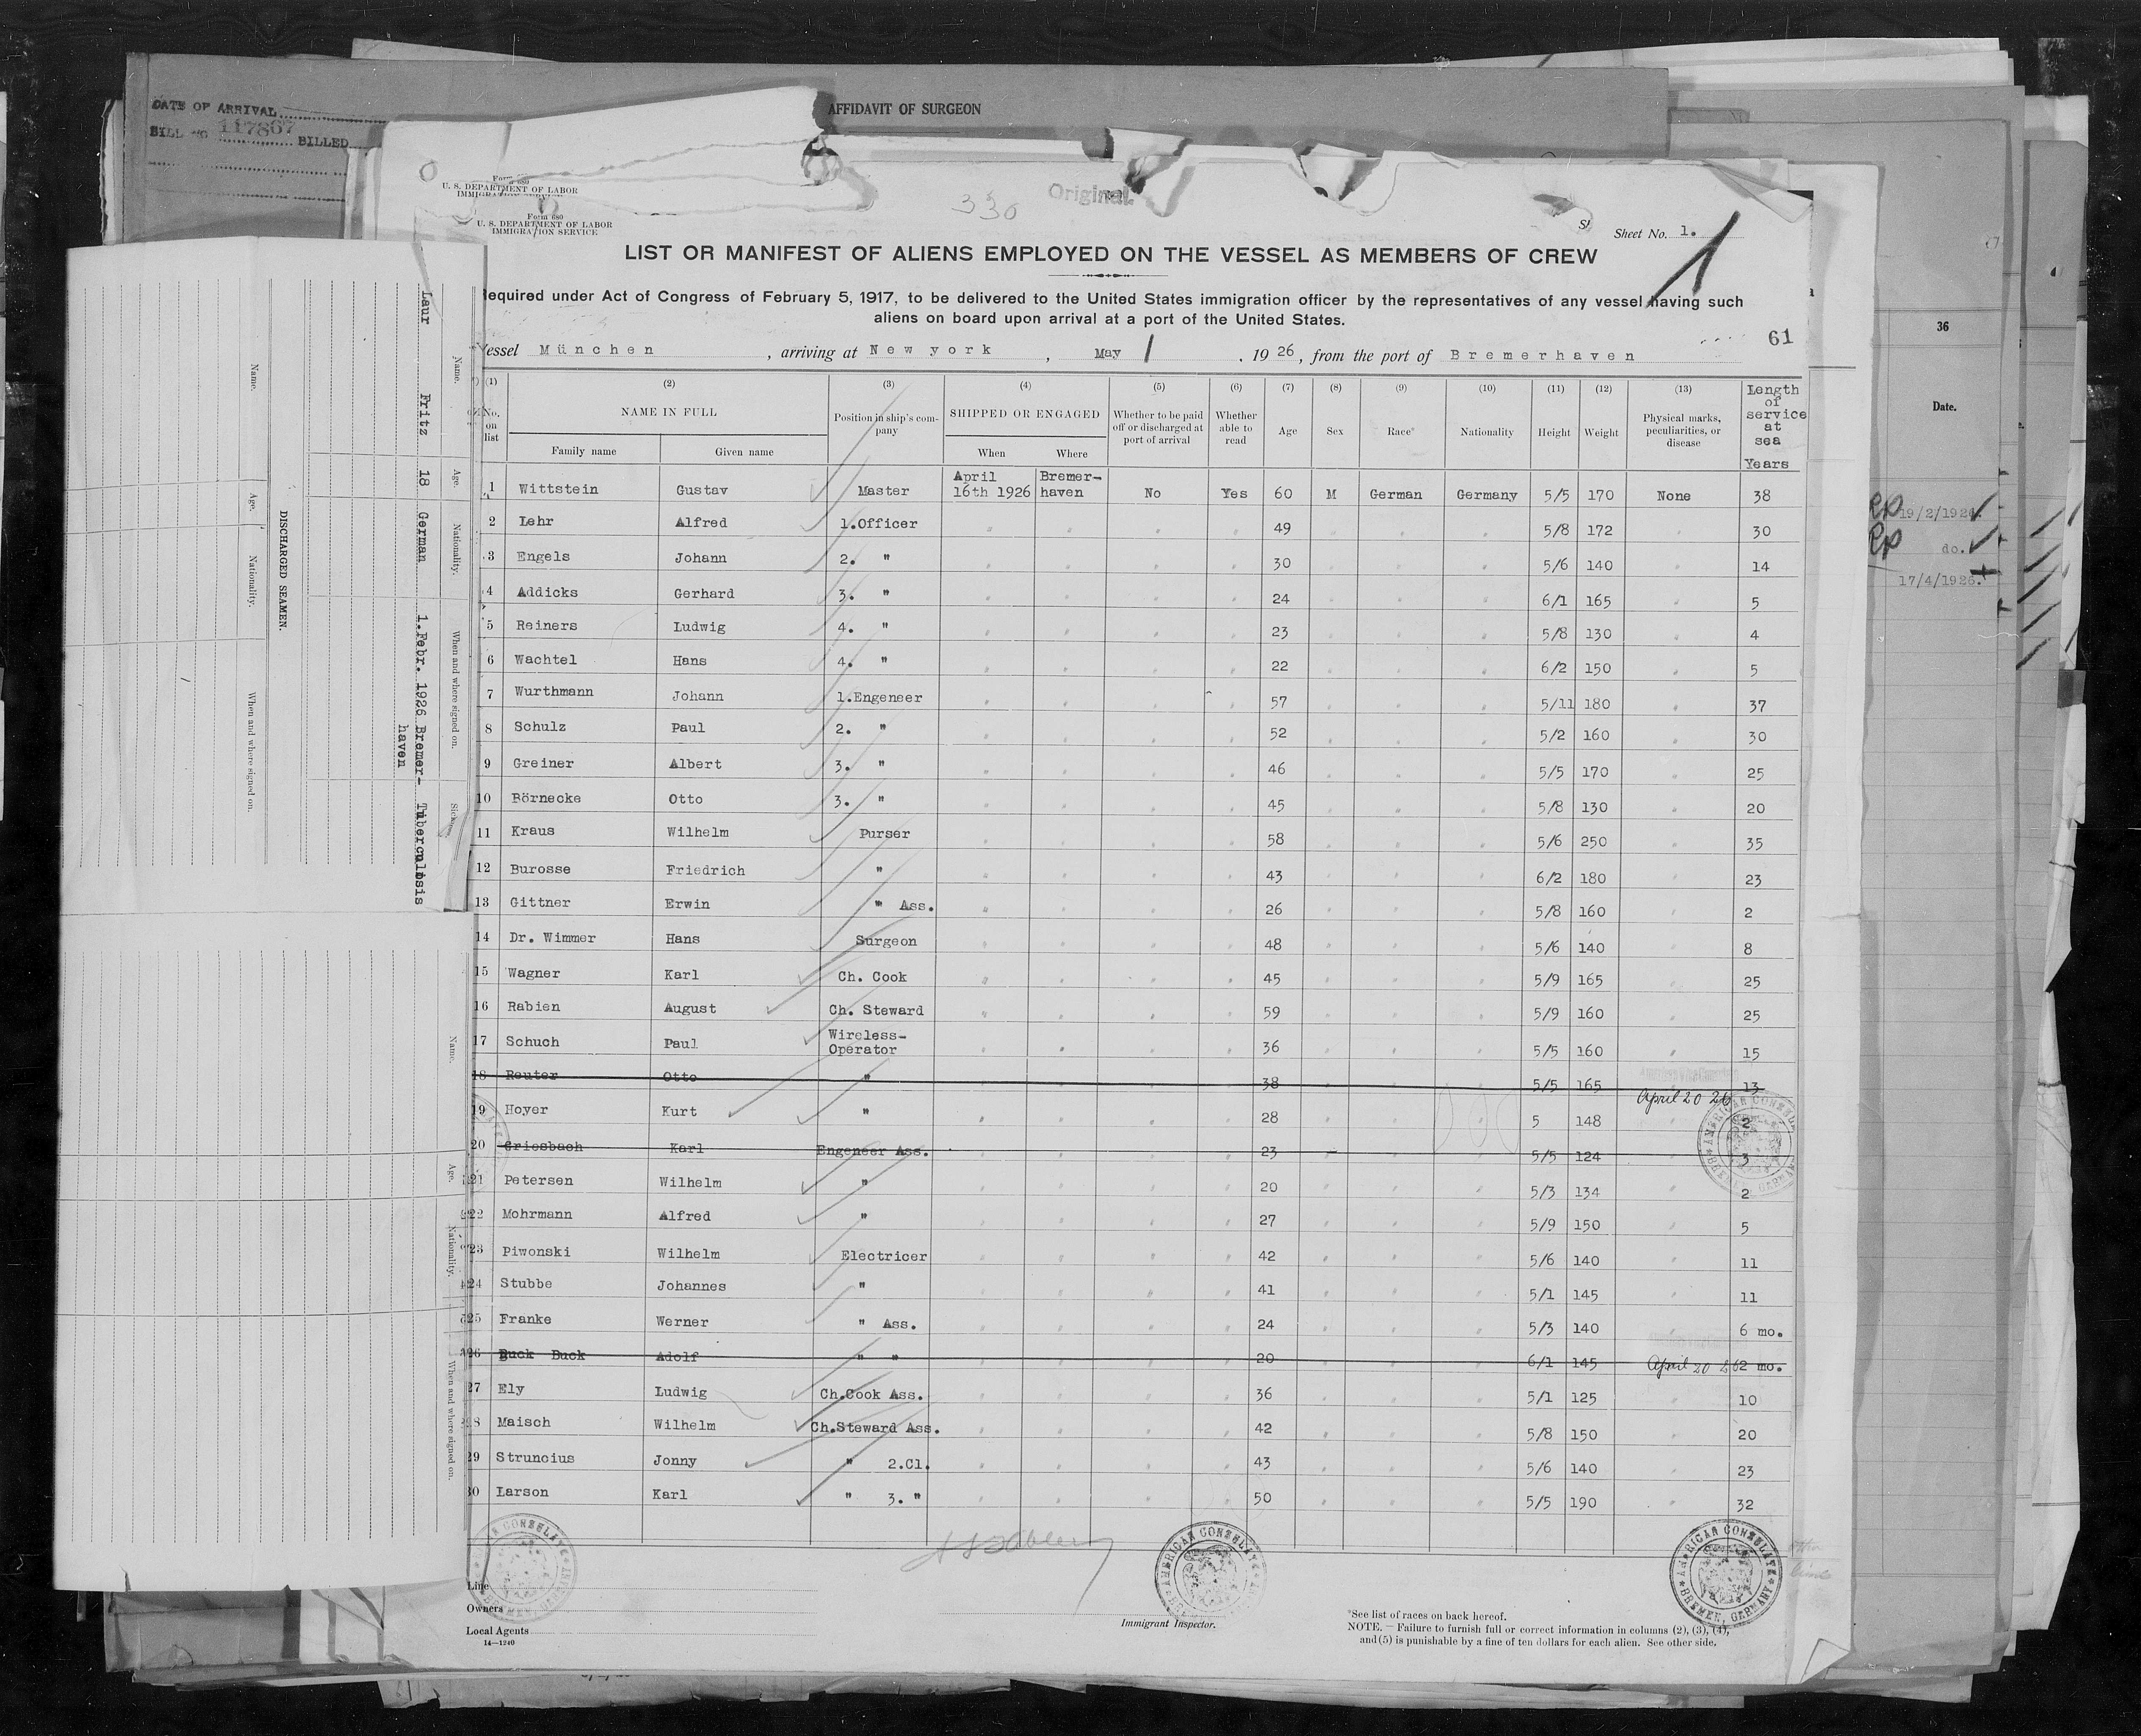 DATE OF ARRIVAL
BILL NO 117867 BILLED
AFFIDAVIT OF SURGEON
Form 680
U. S. DEPARTMENT OF LABOR
IMMIGRATION SERVICE
Form 680
U. S. DEPARTMENT OF LABOR
IMMIGRATION SERVICE
330
Original
Sheet No. 1.
1
LIST OR MANIFEST OF ALIENS EMPLOYED ON THE VESSEL AS MEMBERS OF CREW
equired under Act of Congress of February 5, 1917, to be delivered to the United States immigration officer by the representatives of any vessel having such
aliens on board upon arrival at a port of the United States.
61
Vessel München, arriving at Newyork, May 1, 1926, from the port of Bremerhaven
(1) (2) (3) (4) (5) (6) (7) (8) (9) (10) (11) (12) (13)
No. on list NAME IN FULL Family name Given name Position in ship's company SHIPPED OR ENGAGED When Where Whether to be paid off or discharged at port of arrival Whether able to read Age Sex Race* Nationality Height Weight Physical marks, peculiarities, or disease Length of service at sea Years
1 Wittstein Gustav Master April 16th 1926 Bremer-haven No Yes 60 M German Germany 5/5 170 None 38
2 Lehr Alfred 1.Officer 49 5/8 172 30
3 Engels Johann 2. " 30 5/6 140 14
4 Addicks Gerhard 3. " 24 6/1 165 5
5 Reiners Ludwig 4. " 23 5/8 130 4
6 Wachtel Hans 4. " 22 6/2 150 5
7 Wurthmann Johann 1.Engeneer 57 5/11 180 37
8 Schulz Paul 2. " 52 5/2 160 30
9 Greiner Albert 3. " 46 5/5 170 25
10 Börnecke Otto 3. " 45 5/8 130 20
11 Kraus Wilhelm Purser 58 5/6 250 35
12 Burosse Friedrich " 43 6/2 180 23
13 Gittner Erwin " Ass. 26 5/8 160 2
14 Dr. Wimmer Hans Surgeon 48 5/6 140 8
15 Wagner Karl Ch. Cook 45 5/9 165 25
16 Rabien August Ch. Steward 59 5/9 160 25
17 Schuch Paul Wireless-Operator 36 5/5 160 15
18 Reuter Otto " 38 5/5 165 13
April 20 26
19 Hoyer Kurt " 28 5 148 2
20 Griesbach Karl Engeneer Ass. 23 5/5 124 3
21 Petersen Wilhelm " 20 5/3 134 2
22 Mohrmann Alfred " 27 5/9 150 5
23 Piwonski Wilhelm Electricer 42 5/6 140 11
24 Stubbe Johannes " 41 5/1 145 11
25 Franke Werner " Ass. 24 5/3 140 6 mo.
26 Buck Buck Adolf " " 20 6/1 145 April 20 26 2 mo.
27 Ely Ludwig Ch.Cook Ass. 36 5/1 125 10
28 Maisch Wilhelm Ch.Steward Ass. 42 5/8 150 20
29 Struncius Jonny " 2.Cl. 43 5/6 140 23
30 Larson Karl " 3. " 50 5/5 190 32
Line
Owners
Local Agents
14—1240
Immigrant Inspector.
*See list of races on back hereof.
NOTE. — Failure to furnish full or correct information in columns (2), (3), (4),
and (5) is punishable by a fine of ten dollars for each alien. See other side.
AMERICAN CONSULATE
BREMEN, GERMANY
Name. Age. Nationality. When and where signed on.
Laur Fritz 18 German 1.Febr. 1926 Bremer-haven Tuberculosis
DISCHARGED SEAMEN.
Name. Age. Nationality. When and where signed on.
Name. Age. Nationality. When and where signed on.
36
Date.
19/2/1926.
do.
17/4/1926.